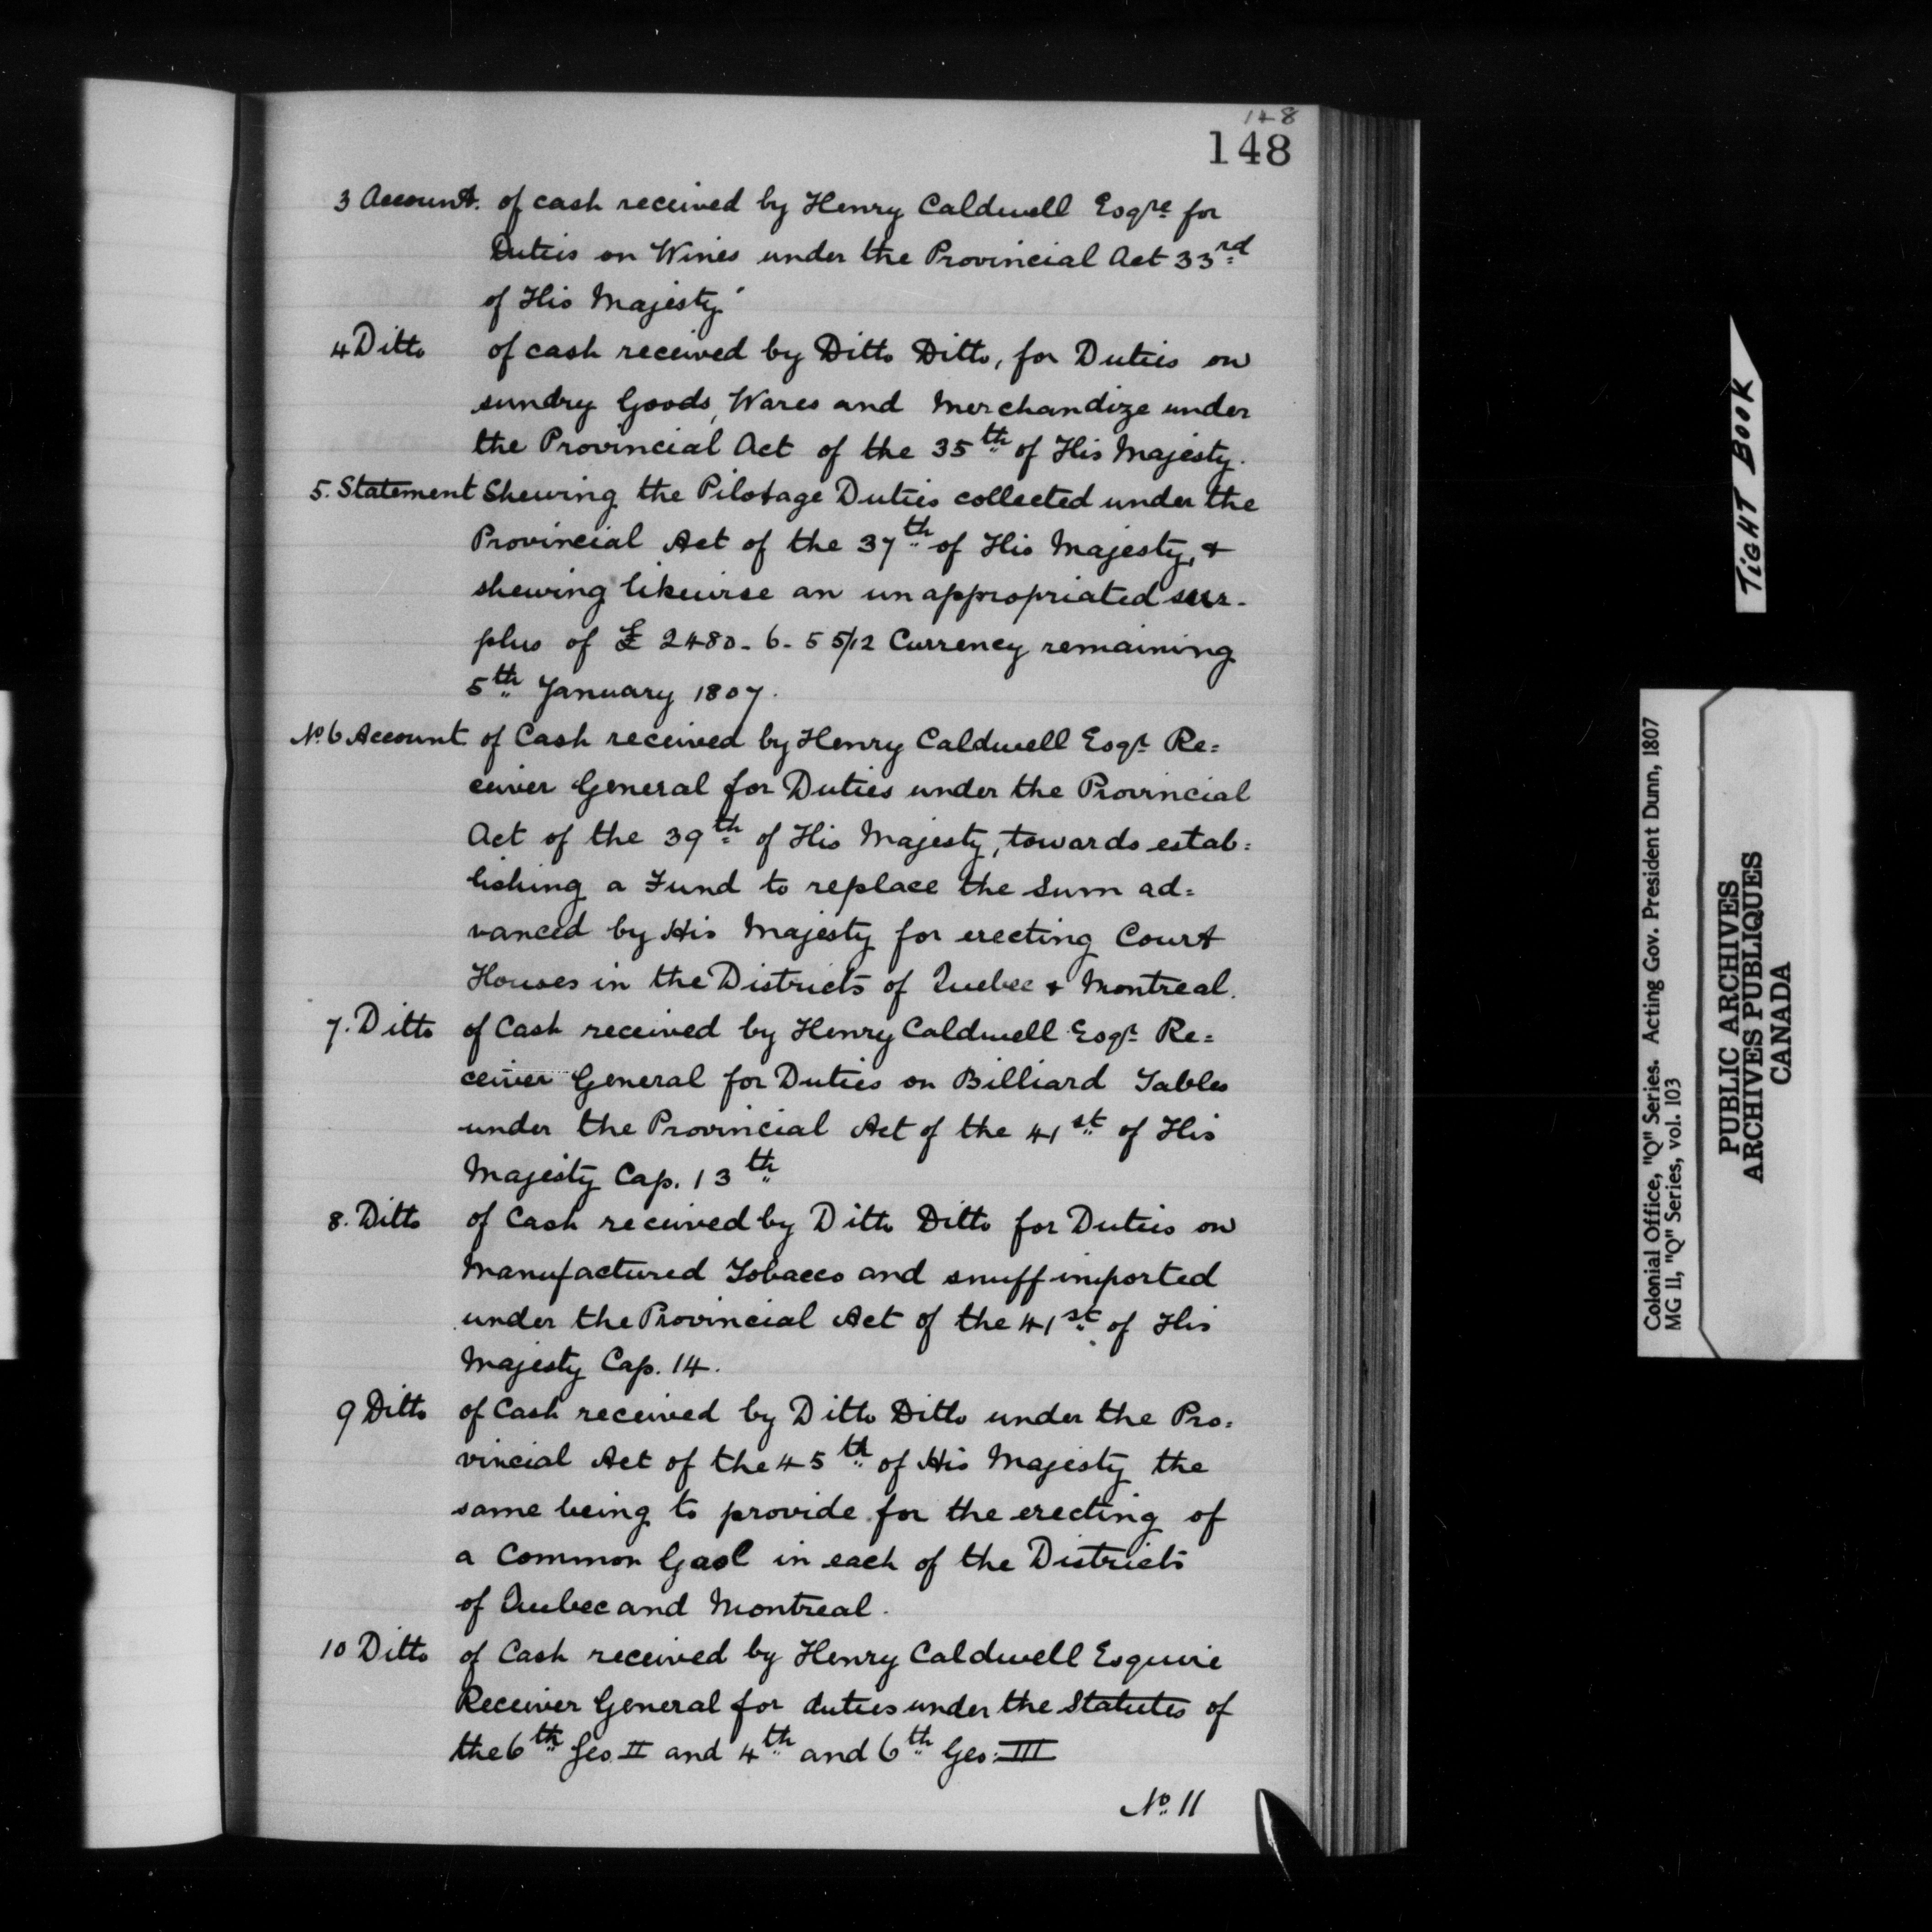 148
148
3 Account. of cash received by Henry Caldwell Esqre for
Duties on Wines under the Provincial Act 33rd
of His Majesty
4 Ditto of cash received by Ditto Ditto, for Duties on
sundry Goods, Wares and Merchandize under
the Provincial Act of the 35th of His Majesty.
5. Statement Shewing the Pilotage Duties collected under the
Provincial Act of the 37th of His Majesty, &
shewing likewise an unappropriated sur-
plus of £ 2480-6-5 5/12 Currency remaining
5th January 1807.
No. 6 Account of Cash received by Henry Caldwell Esqr Re=
ceiver General for Duties under the Provincial
Act of the 39th of His Majesty, towards estab=
lishing a Fund to replace the sum ad=
vanced by His Majesty for erecting Court
Houses in the Districts of Quebec & Montreal.
7. Ditto of Cash received by Henry Caldwell Esqr Re=
ceiver General for Duties on Billiard Tables
under the Provincial Act of the 41st of His
Majesty Cap. 13th
8. Ditto of Cash received by Ditto Ditto for Duties on
Manufactured Tobacco and snuff imported
under the Provincial Act of the 41st of His
Majesty Cap. 14.
9 Ditto of Cash received by Ditto Ditto under the Pro=
vincial Act of the 45th of His Majesty the
same being to provide for the erecting of
a Common Gaol in each of the Districts
of Quebec and Montreal.
10 Ditto of Cash received by Henry Caldwell Esquire
Receiver General for duties under the Statutes of
the 6th Geo. II and 4th and 6th Geo: III
No. 11
TIGHT BOOK
Colonial Office, "Q" Series. Acting Gov. President Dunn, 1807
MG 11, "Q" Series, vol. 103
PUBLIC ARCHIVES
ARCHIVES PUBLIQUES
CANADA